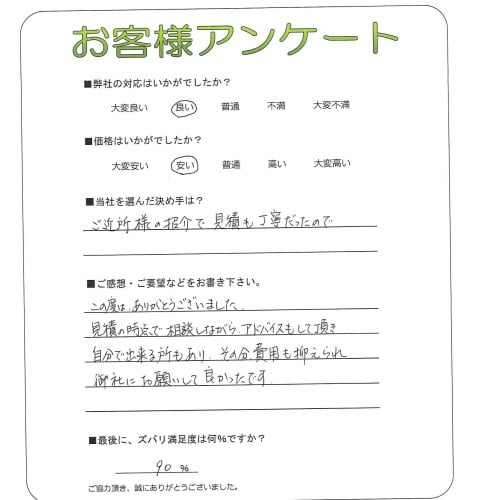 お客様アンケート
■弊社の対応はいかがでしたか?
大変良い 良い 普通 不満 大変不満
■価格はいかがでしたか?
大変安い 安い 普通 高い 大変高い
■当社を選んだ決め手は?
ご近所様の紹介で見積も丁寧だったので
■ご感想・ご要望などをお書き下さい。
この度は、ありがとうございました。
見積の時点で相談しながら、アドバイスもして頂き
自分で出来る所もあり、その分、費用も抑えられ
御社にお願いして良かったです。
■最後に、ズバリ満足度は何%ですか?
90 %
ご協力頂き、誠にありがとうございました。